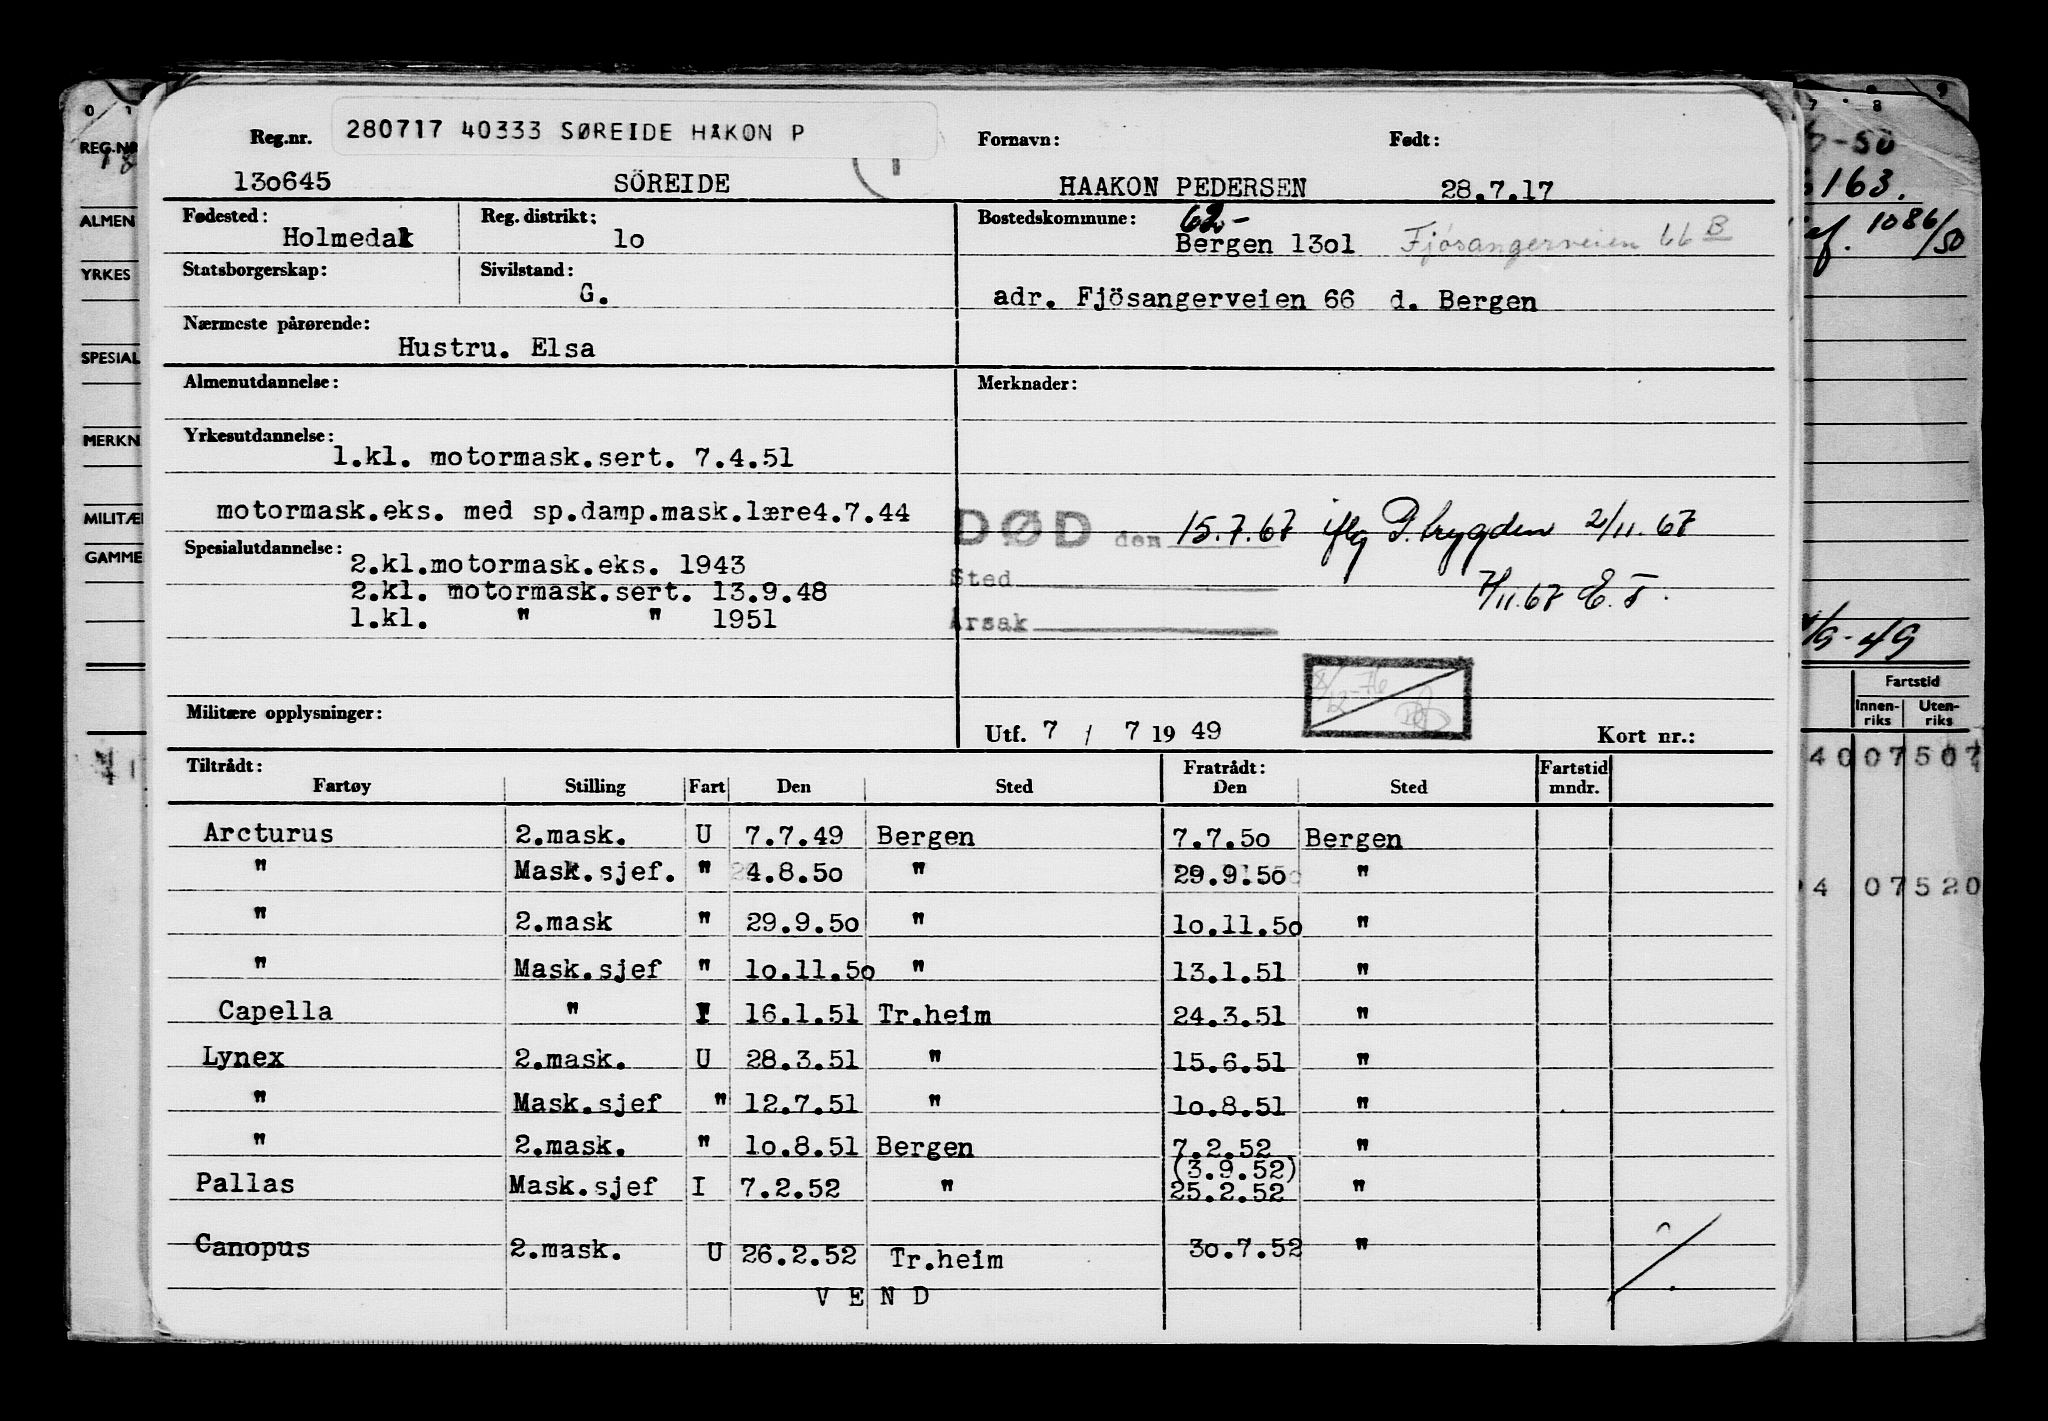 280717 40333 SØREIDE HÅKON P
Reg.nr. Fornavn: Født:
13o645 SÖREIDE HAAKON PEDERSEN 28.7.17
Fødested: Reg. distrikt: Bostedskommune: 62-
Holmedal 1o Bergen 13o1 Fjösangerveien 66 B
Statsborgerskap: Sivilstand:
G. adr. Fjösangerveien 66 d. Bergen
Nærmeste pårørende:
Hustru. Elsa
Almenutdannelse: Merknader:
Yrkesutdannelse:
1.kl. motormask.sert. 7.4.51
motormask.eks. med sp.damp.mask.lære4.7.44
DØD den 15.7.67 iflg P. trygden 2/11.67
Spesialutdannelse:
2.kl.motormask.eks. 1943
Sted
7/11.67 E.F.
2.kl. motormask.sert. 13.9.48
1.kl. " " 1951
Årsak
Militære opplysninger:
Utf. 7 / 7 19 49 Kort nr.:
Tiltrådt: Fratrådt: Fartstid
Fartøy Stilling Fart Den Sted Den Sted mndr.
Arcturus 2.mask. U 7.7.49 Bergen 7.7.5o Bergen
" Mask.sjef. " 4.8.5o " 29.9.5o "
" 2.mask " 29.9.5o " 1o.11.5o "
" Mask.sjef " 1o.11.5o " 13.1.51 "
Capella " I 16.1.51 Tr.heim 24.3.51 "
Lynex 2.mask. U 28.3.51 " 15.6.51 "
" Mask.sjef " 12.7.51 " 1o.8.51 "
" 2.mask. " 1o.8.51 Bergen 7.2.52 "
(3.9.52)
Pallas Mask.sjef I 7.2.52 " 25.2.52 "
Canopus 2.mask. U 26.2.52 Tr.heim 3o.7.52 "
V E N D
0 1
REG.NR
ALMEN
YRKES
SPESIAL
MERKN
MILITÆ
GAMME
7 8 9
-50
163.
1086/50
/9-49
Fartstid
Innen-riks Uten-riks
4007507
4 07520